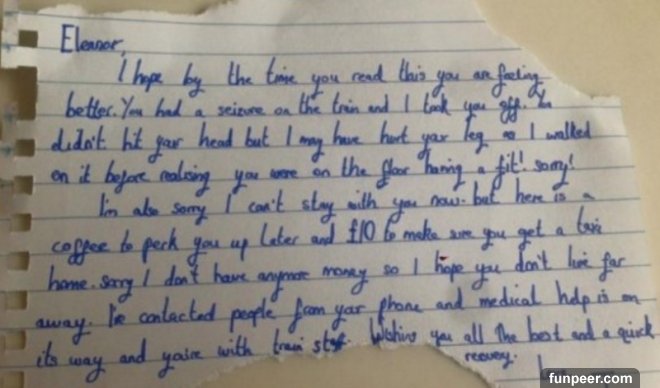 Eleanor,
I hope by the time you read this you are feeling
better. You had a seizure on the train and I took you off. You
didn't hit your head but I may have hurt your leg as I walked
on it before realising you were on the floor having a fit! sorry!
I'm also sorry I can't stay with you now. but here is a
coffee to perk you up later and £10 to make sure you get a taxi
home. sorry I don't have anymore money so I hope you don't live far
away. I've contacted people from your phone and medical help is on
its way and you're with train staff Wishing you all the best and a quick
recovery.
funpeer.com